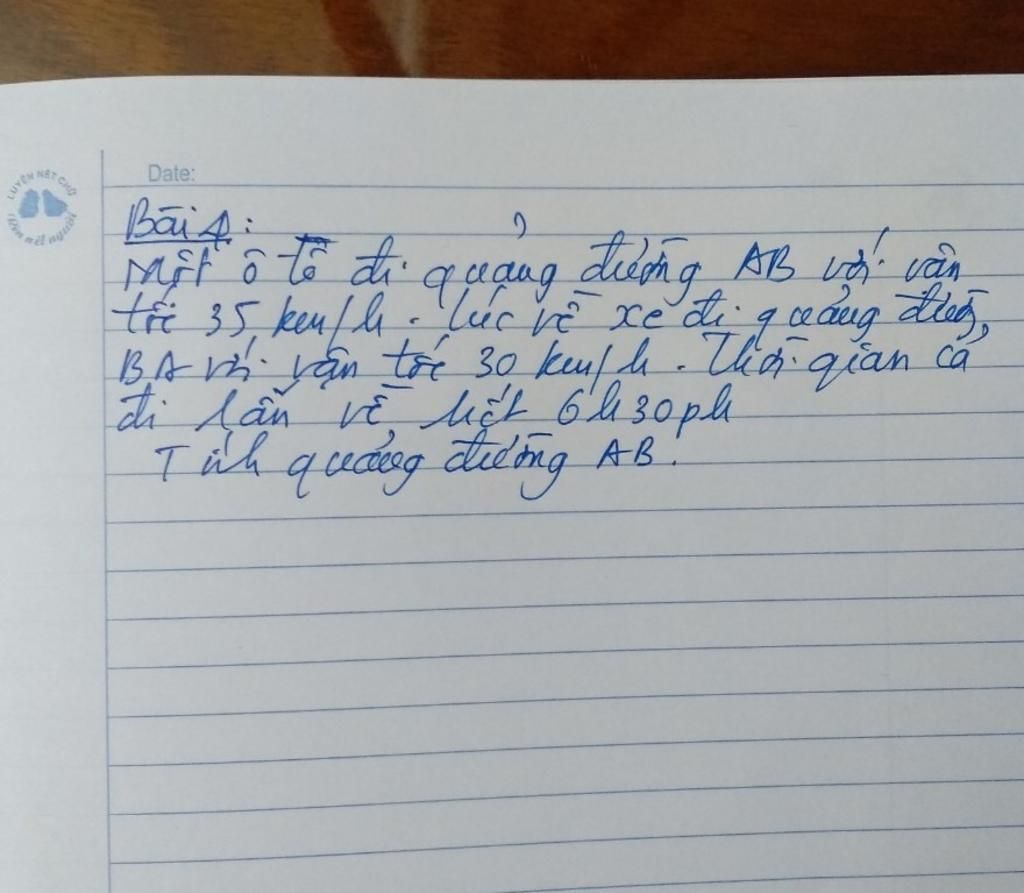 LUYỆN NÉT CHỮ
Rèn nết người
Date:
Bài 4:
Một ô tô đi quảng đường AB với vận
tốc 35 km/h. Lúc về xe đi quảng đường
BA với vận tốc 30 km/h. Thời gian cả
đi lẫn về hết 6h30ph
Tính quảng đường AB.